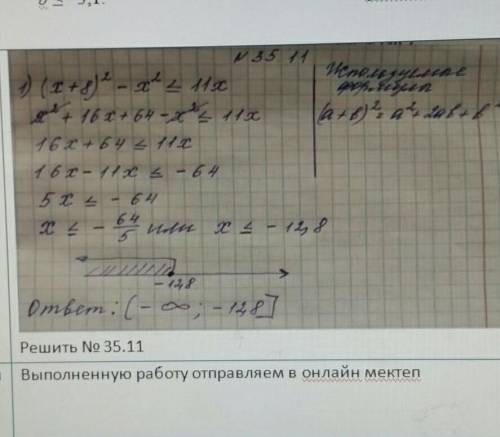 № 35 11
1) (x+8)² - x² ≤ 11x
x² + 16x + 64 - x² ≤ 11x
16x + 64 ≤ 11x
16x - 11x ≤ -64
5x ≤ -64
x ≤ - 64/5 или x ≤ -12,8
-12,8
Ответ: (-∞; -12,8]
(a+b)² = a² + 2ab + b
Решить № 35.11
Выполненную работу отправляем в онлайн мектеп